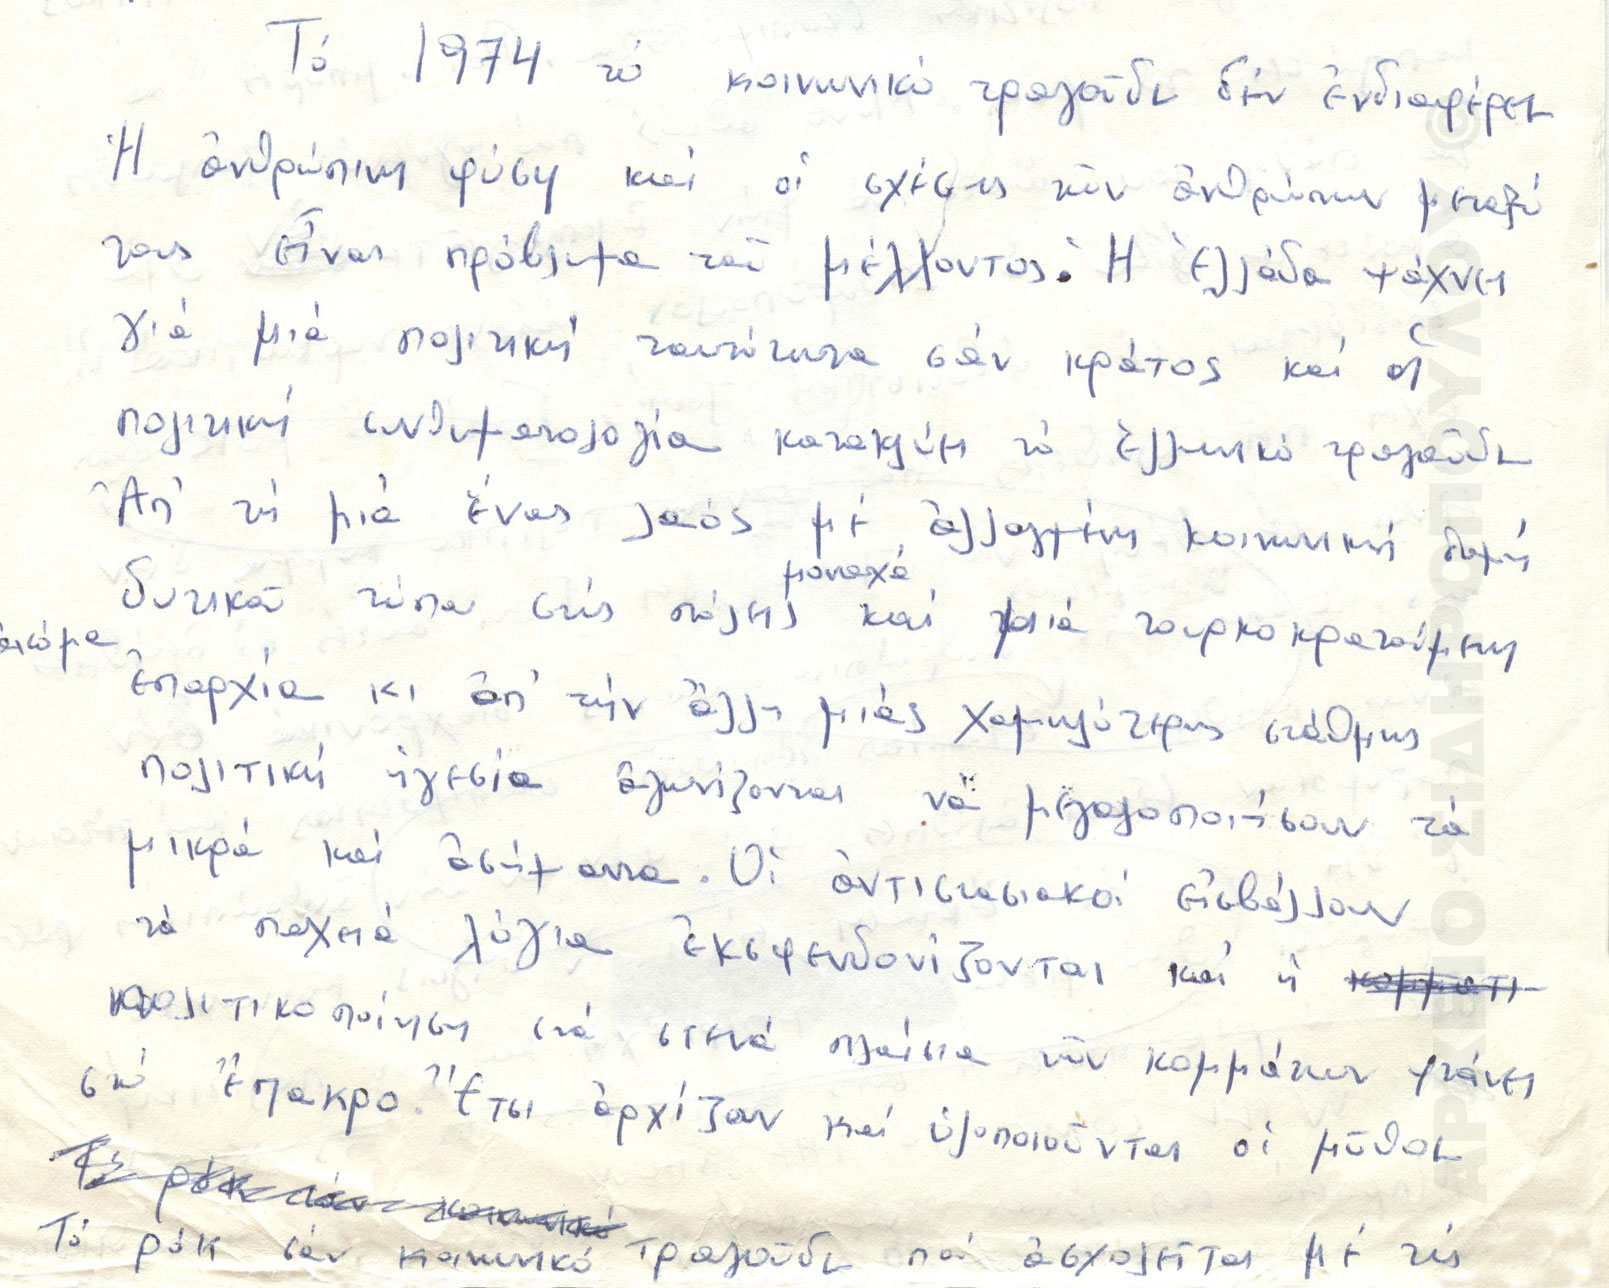 Τό 1974 τό κοινωνικό τραγοῦδι δέν ἐνδιαφέρει
Ἡ ἀνθρώπινη φύση καί οἱ σχέσεις τῶν ἀνθρώπων μεταξύ
τους εἶναι πρόβλημα τοῦ μέλλοντος. Ἡ Ἑλλάδα ψάχνει
γιά μιά πολιτική ταυτότητα σάν κράτος καί ἡ
πολιτική συνθηματολογία κατακλύζει τό ἑλληνικό τραγοῦδι
Ἀπ' τή μιά ἕνας λαός μέ ἀλλαγμένη κοινωνική δομή
δυτικοῦ τύπου στίς πόλεις μοναχά καί μιά τουρκοκρατούμενη
ἀκόμα
ἐπαρχία κι ἀπ' τήν ἄλλη μιάς χαμηλότερης στάθμης
πολιτική ἡγεσία ἀγωνίζονται νά μεγαλοποιήσουν τά
μικρά καί ἀσήμαντα. Οἱ ἀντιστασιακοί εἰσβάλλουν
τά παχειά λόγια ἐκσφενδονίζονται καί ἡ κομματι
πολιτικοποίηση στά στενά πλαίσια τῶν κομμάτων φτάνει
στό ἔπακρο. Ἔτσι ἀρχίζουν καί ὑλοποιοῦνται οἱ μῦθοι
Τό ρόκ σάν κοινωνικό
Τό ρόκ σάν κοινωνικό τραγοῦδι πού ἀσχολεῖται μέ τίς
ΑΡΧΕΙΟ ΣΙΔΗΡΟΠΟΥΛΟΥ ©